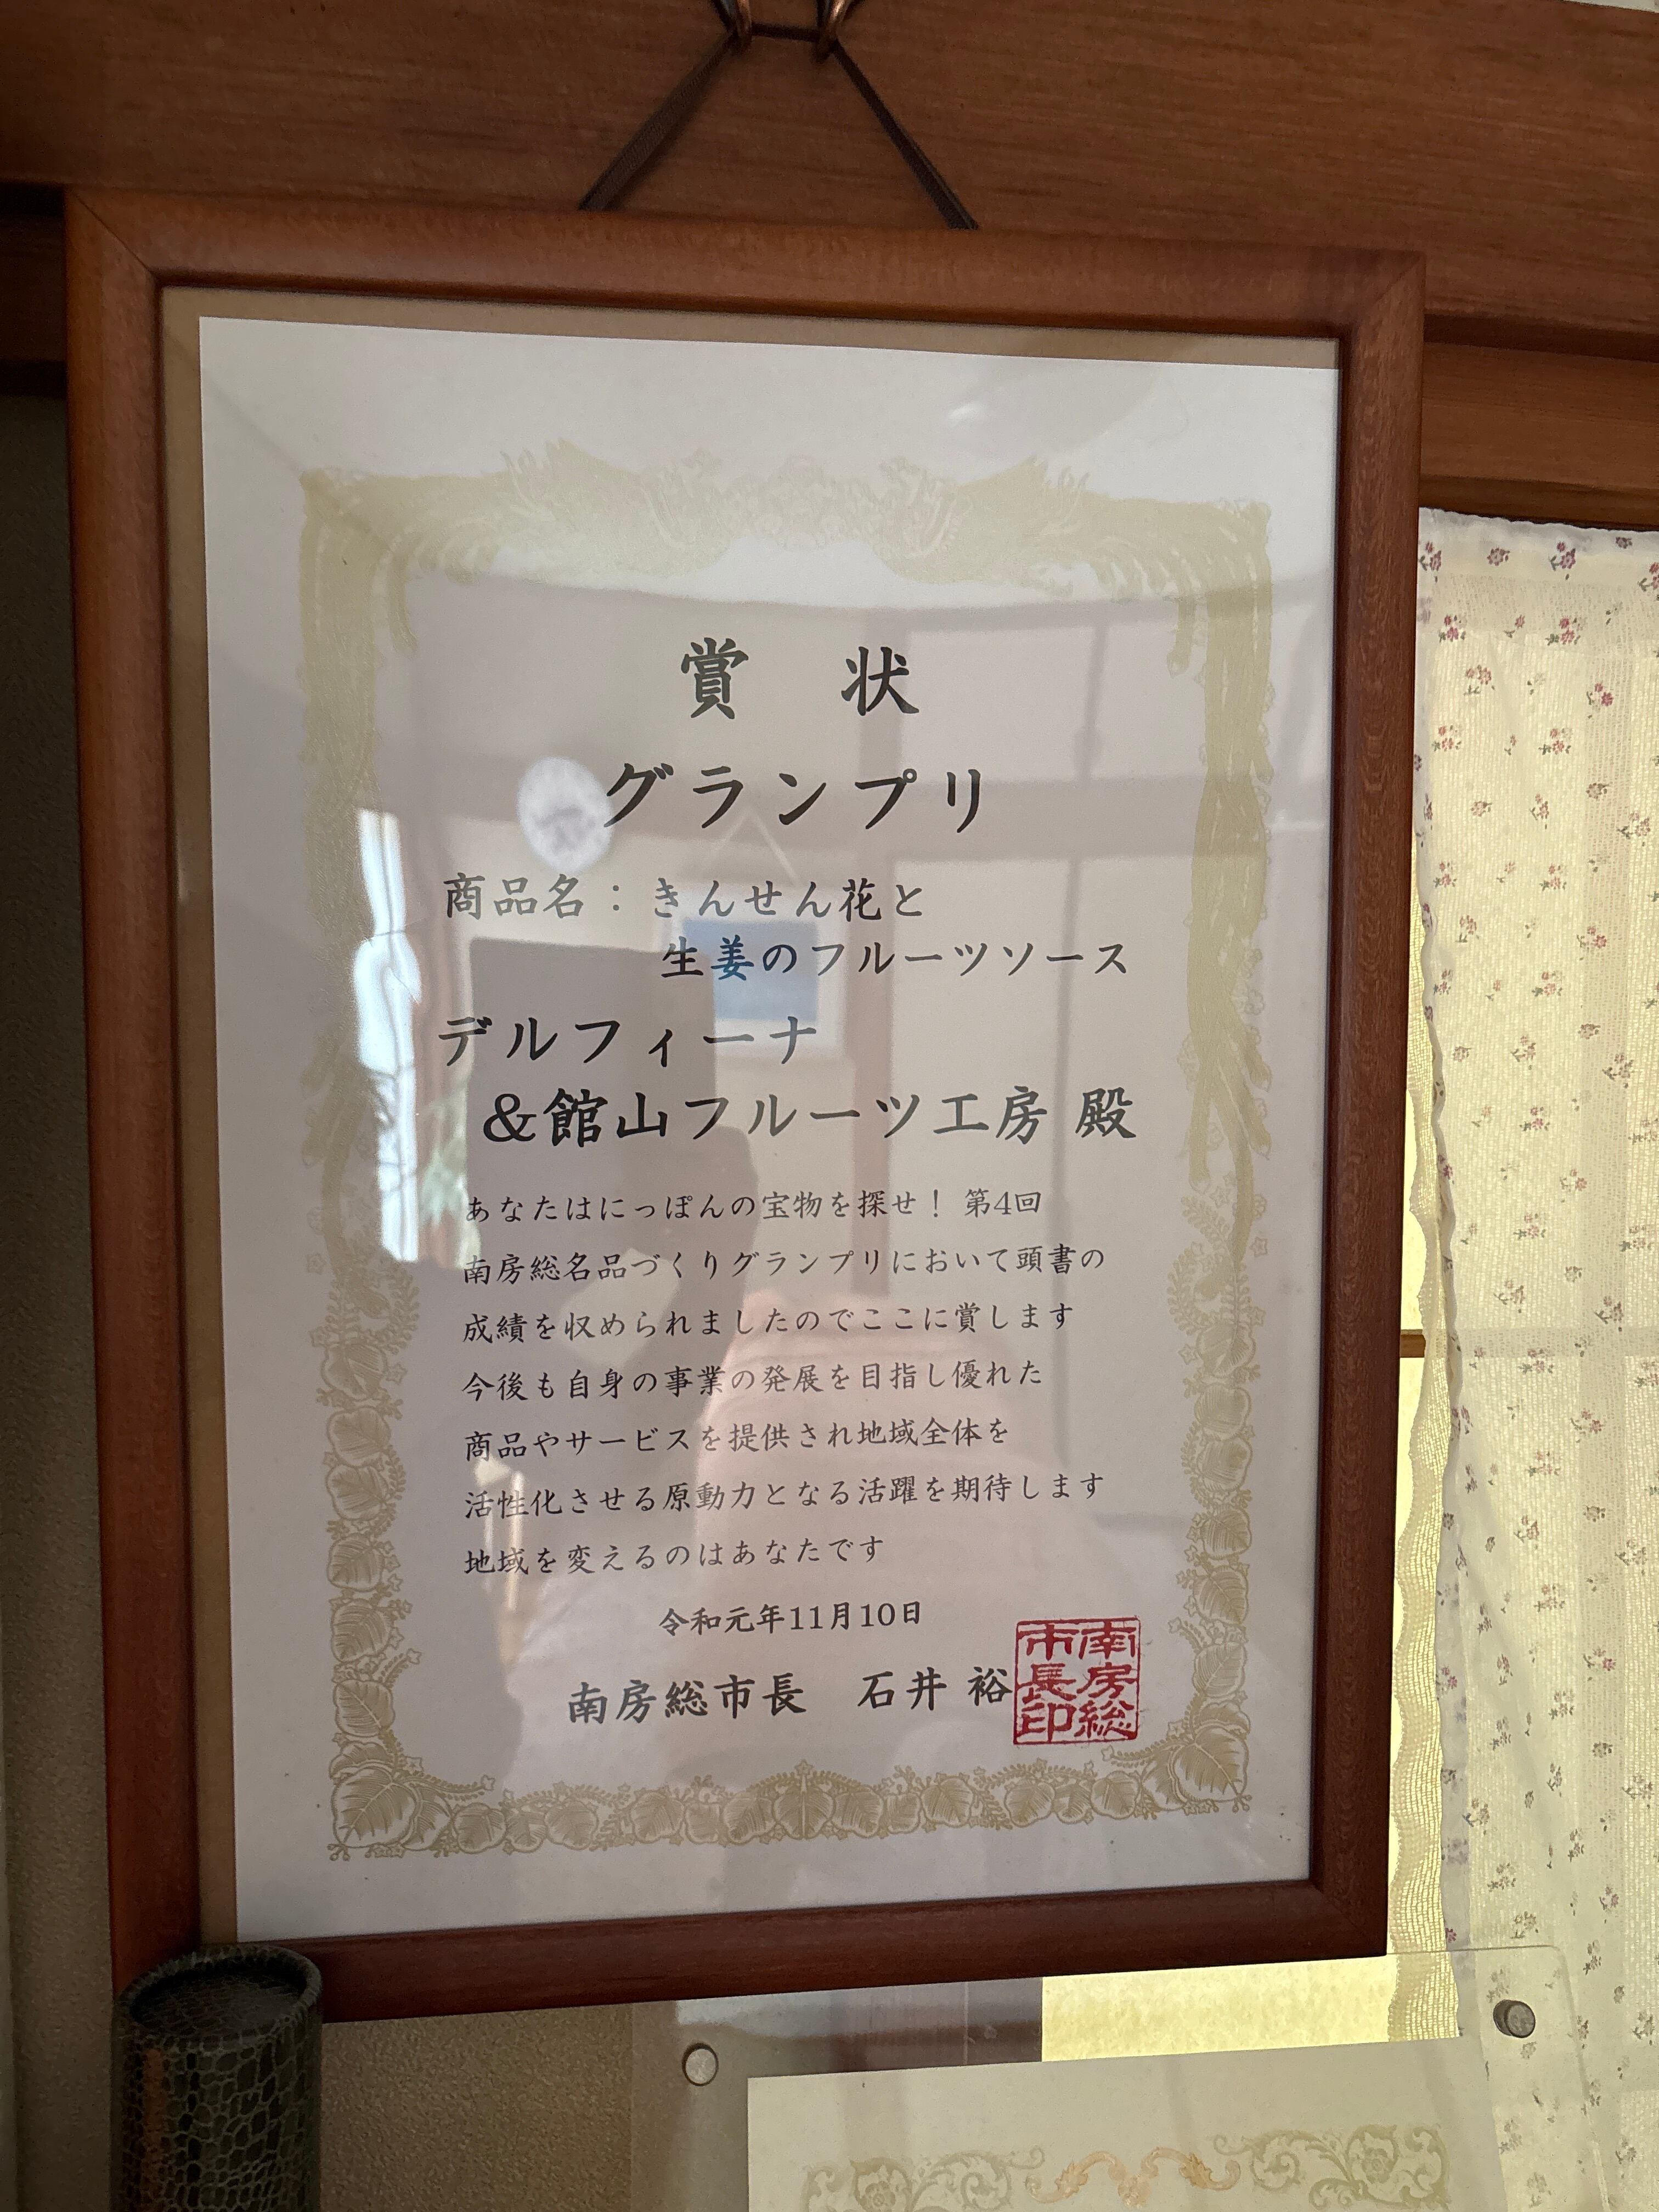 賞 状
グランプリ
商品名：きんせん花と
生姜のフルーツソース
デルフィーナ
&館山フルーツ工房 殿
あなたはにっぽんの宝物を探せ！ 第4回
南房総名品づくりグランプリにおいて頭書の
成績を収められましたのでここに賞します
今後も自身の事業の発展を目指し優れた
商品やサービスを提供され地域全体を
活性化させる原動力となる活躍を期待します
地域を変えるのはあなたです
令和元年11月10日
南房総市長 石井 裕
南房総
市長印